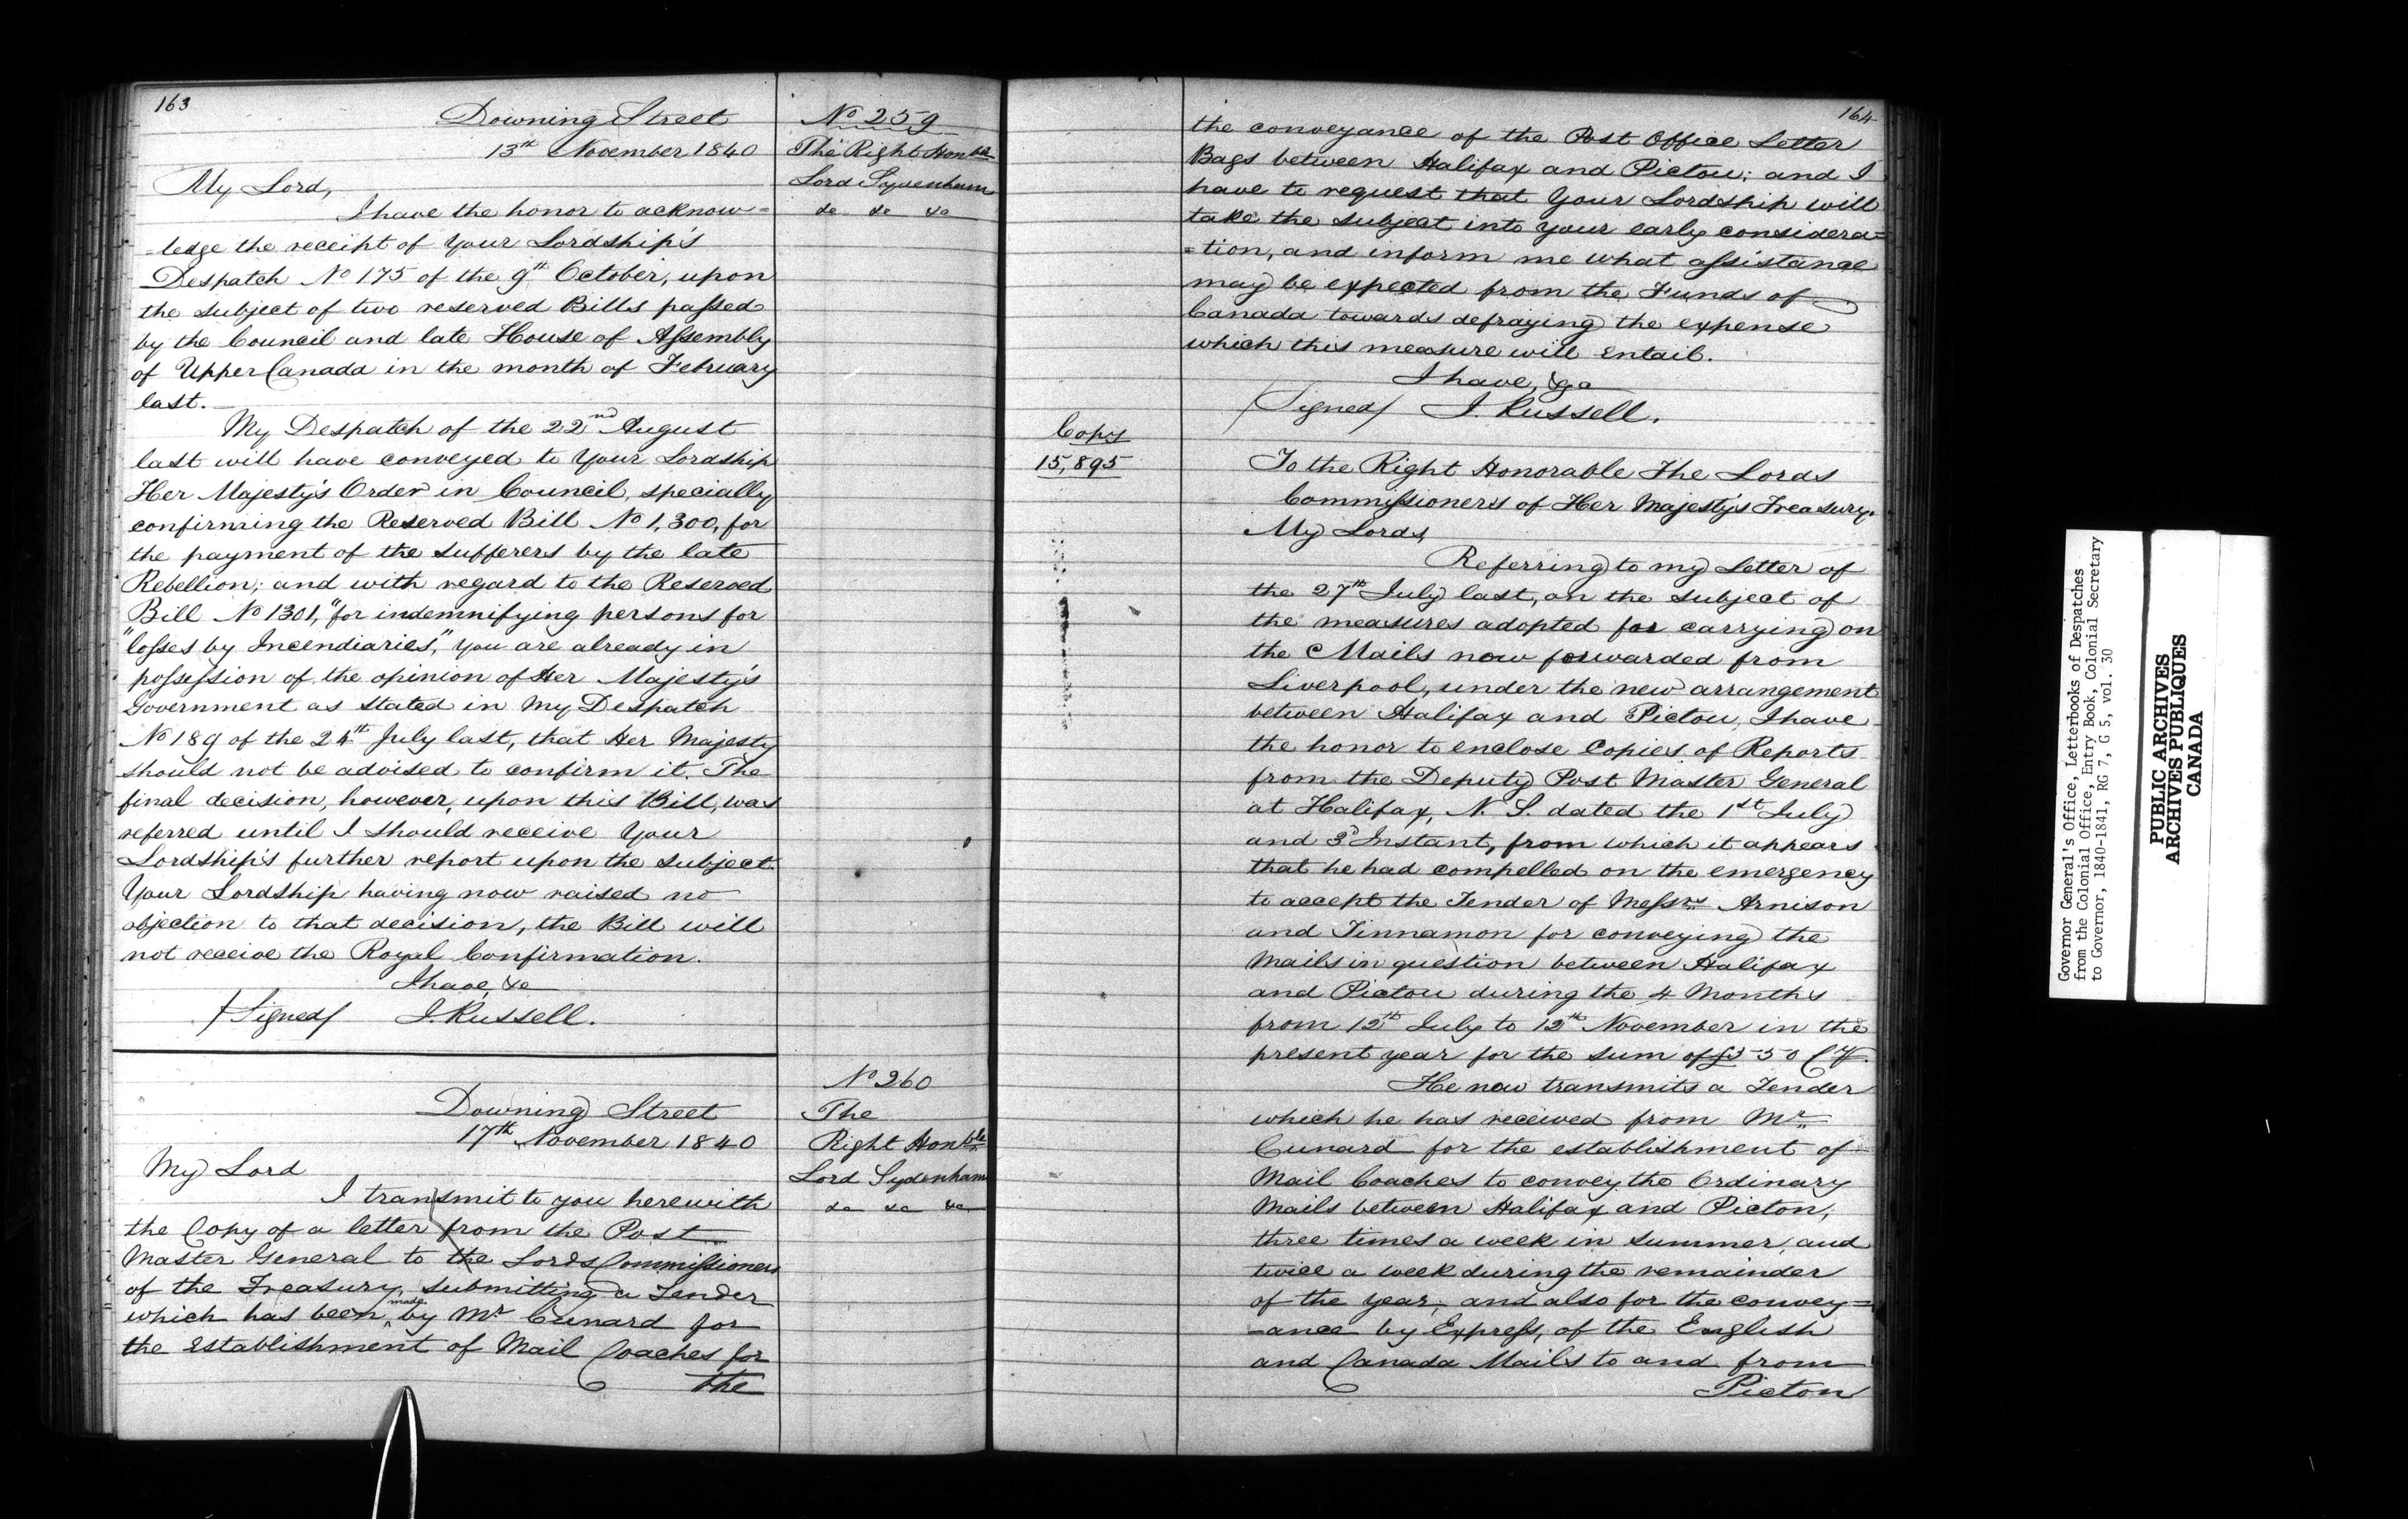 163
Downing Street
13th November 1840
No 259
The Right Honble
Lord Sydenham
&c &c &c
My Lord,
I have the honor to acknow=
=ledge the receipt of Your Lordship's
Despatch No 175 of the 9th October, upon
the subject of two reserved Bills passed
by the Council and late House of Assembly
of Upper Canada in the month of February
last.
My Despatch of the 22nd August
last will have conveyed to Your Lordship
Her Majesty's Order in Council, specially
confirming the Reserved Bill No 1,300, for
the payment of the sufferers by the late
Rebellion; and with regard to the Reserved
Bill No 1301, "for indemnifying persons for
"losses by Incendiaries," you are already in
possession of the opinion of Her Majesty's
Government as stated in My Despatch
No 189 of the 24th July last, that Her Majesty
should not be advised to confirm it. The
final decision, however, upon this Bill, was
referred until I should receive Your
Lordship's further report upon the subject.
Your Lordship having now raised no
objection to that decision, the Bill will
not receive the Royal Confirmation.
I have, &c
/Signed/ J. Russell.
Downing Street
17th November 1840
No 260
The
Right Honble
Lord Sydenham
&c &c &c
My Lord
I transmit to you herewith
the Copy of a letter from the Post
Master General to the Lords Commissioners
of the Treasury, submitting a Tender
which has been made by Mr Cunard for
the establishment of Mail Coaches for
the
164
the conveyance of the Post Office Letter
Bags between Halifax and Pictou; and I
have to request that Your Lordship will
take the subject into your early considera=
=tion, and inform me what assistance
may be expected from the Funds of
Canada towards defraying the expense
which this measure will entail.
I have, &c
/Signed/ J. Russell.
Copy
15,895
To the Right Honorable The Lords
Commissioners of Her Majesty's Treasury.
My Lords,
Referring to my Letter of
the 27th July last, on the subject of
the measures adopted for carrying on
the Mails now forwarded from
Liverpool, under the new arrangement
between Halifax and Pictou, I have
the honor to enclose Copies of Reports
from the Deputy Post Master General
at Halifax, N. S. dated the 1st July
and 3d Instant, from which it appears
that he had compelled on the emergency
to accept the Tender of Messrs Arnison
and Tinnamon for conveying the
Mails in question between Halifax
and Pictou during the 4 Months
from 12th July to 12th November in the
present year for the sum of £350 Cy.
He now transmits a Tender
which he has received from Mr
Cunard for the establishment of
Mail Coaches to convey the Ordinary
Mails between Halifax and Picton,
three times a week in summer, and
twice a week during the remainder
of the year; and also for the convey=
=ance by Express, of the English
and Canada Mails to and from
Picton
Governor General's Office, Letterbooks of Despatches
from the Colonial Office, Entry Book, Colonial Secretary
to Governor, 1840-1841, RG 7, G 5, vol. 30
PUBLIC ARCHIVES
ARCHIVES PUBLIQUES
CANADA